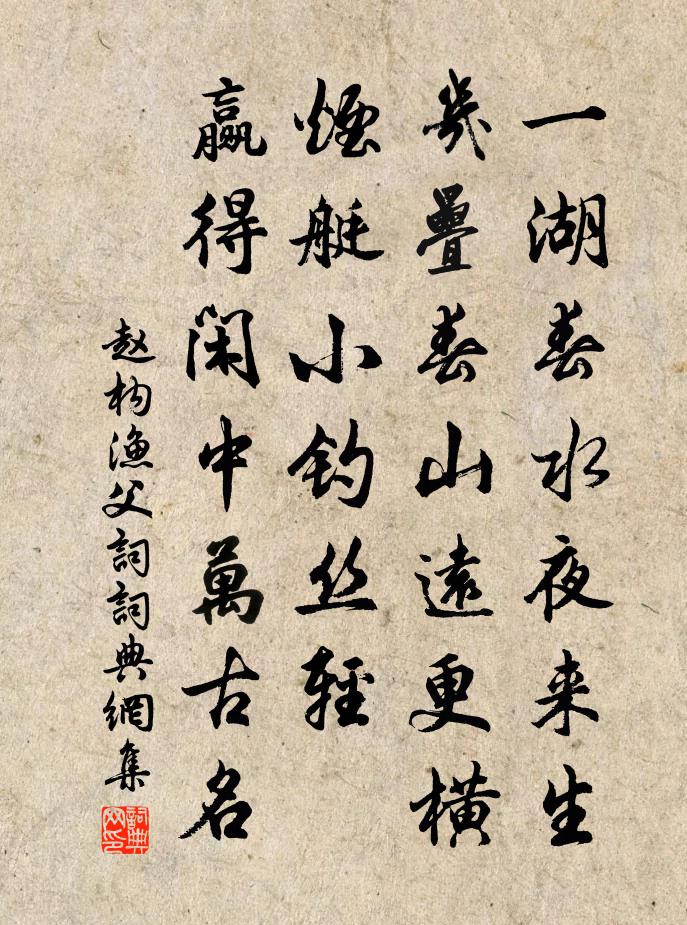 一湖春水夜来生
幾疊春山遠更橫
煙艇小釣丝輕
贏得閑中萬古名
赵构漁父詞詞典網集
詞典网印